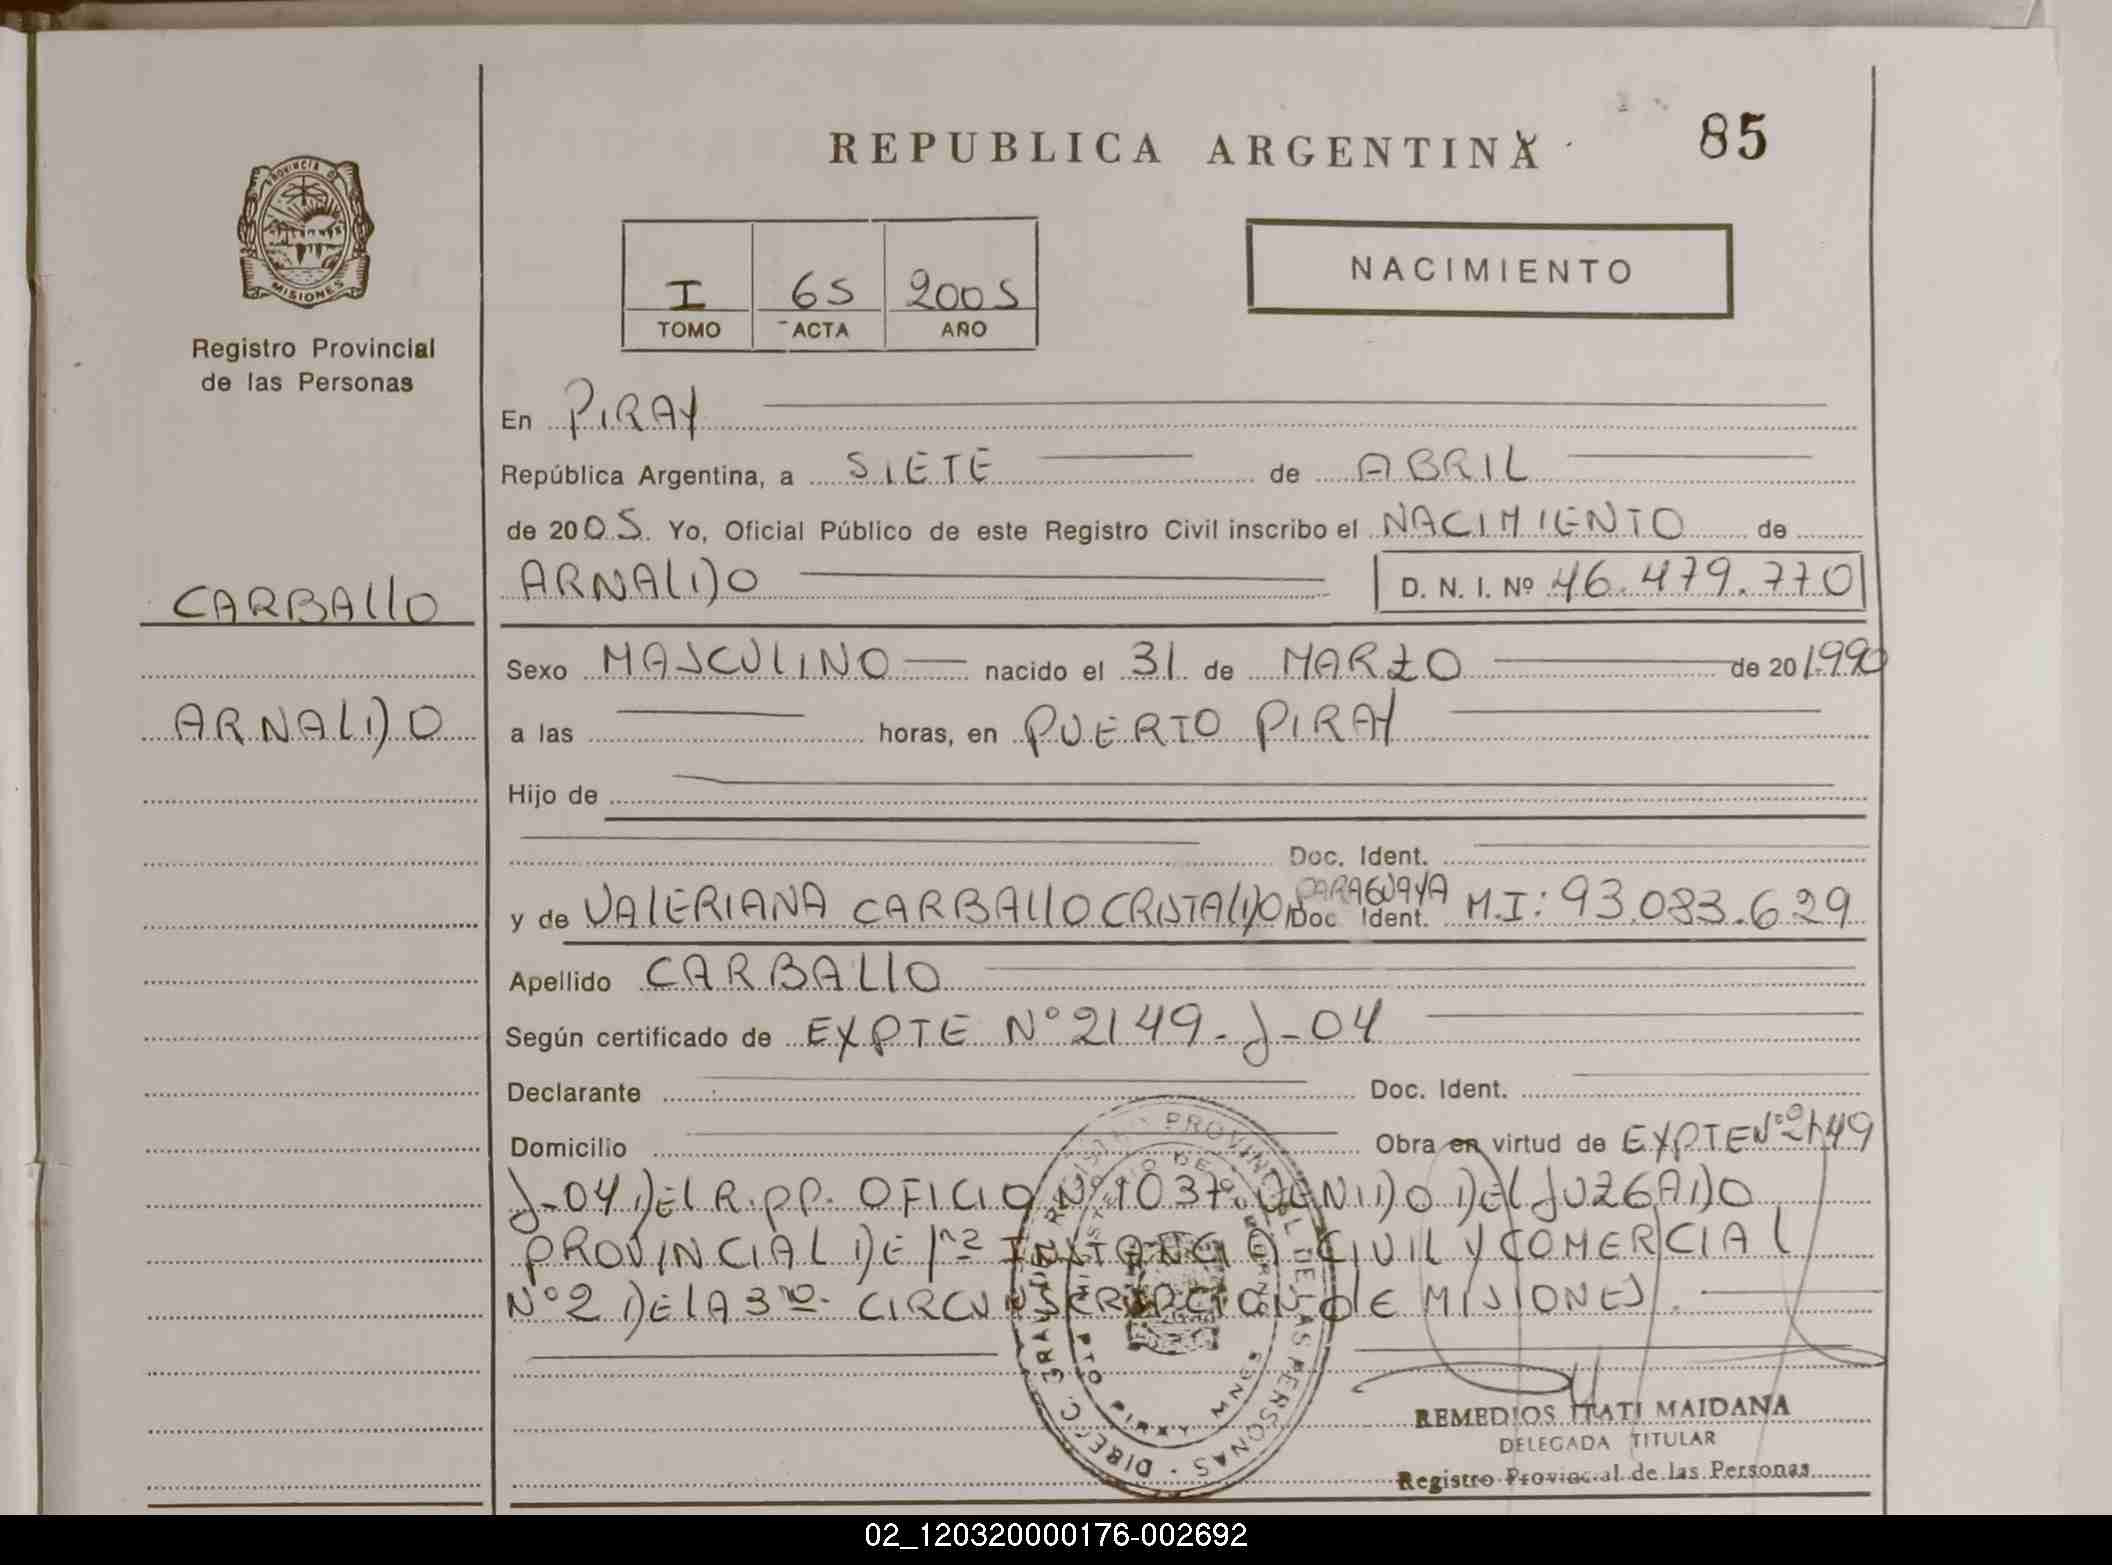 REPUBLICA ARGENTINA
85
PROVINCIA DE
MISIONES
Registro Provincial
de las Personas
I 65 2005
TOMO ACTA AÑO
NACIMIENTO
En PIRAY
República Argentina, a SIETE de ABRIL
de 2005. Yo, Oficial Público de este Registro Civil inscribo el NACIMIENTO de
ARNALDO D. N. I. Nº 46.479.770
CARBALLO
Sexo MASCULINO nacido el 31 de MARZO de 20/1990
ARNALDO
a las horas, en PUERTO PIRAY
Hijo de
Doc. Ident.
PARAGUAYA
y de VALERIANA CARBALLO CRISTALDO Doc Ident. M.I: 93.083.629
Apellido CARBALLO
Según certificado de EXPTE Nº 2149-J-04
Declarante Doc. Ident.
Domicilio Obra en virtud de EXPTE Nº 2149
J-04 DEL R.P.P. OFICIO Nº 1037 VENIDO DEL JUZGADO
PROVINCIAL DE 1ra INSTANCIA CIVIL Y COMERCIAL
Nº 2 DE LA 3ra CIRCUNSCRIPCION DE MISIONES.
DIRECC. GRAL. DEL REGISTRO PROVINCIAL DE LAS PERSONAS
MINISTERIO DE GOBIERNO
PTO PIRAY MNES
REMEDIOS ITATI MAIDANA
DELEGADA TITULAR
Registro Provincial de las Personas
02_120320000176-002692